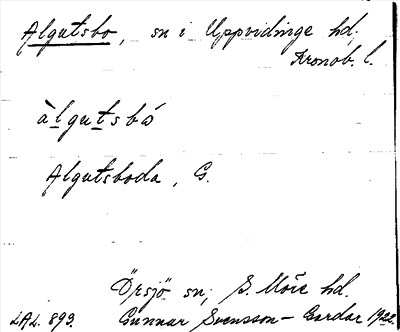 Algutsbo, sn i Uppvidinge hd,
Kronob. l.
àlgutsbo
Algutsboda, G.
Örsjö sn, S. Möre hd.
LAL. 893. Gunnar Svensson - Gardar 1922.